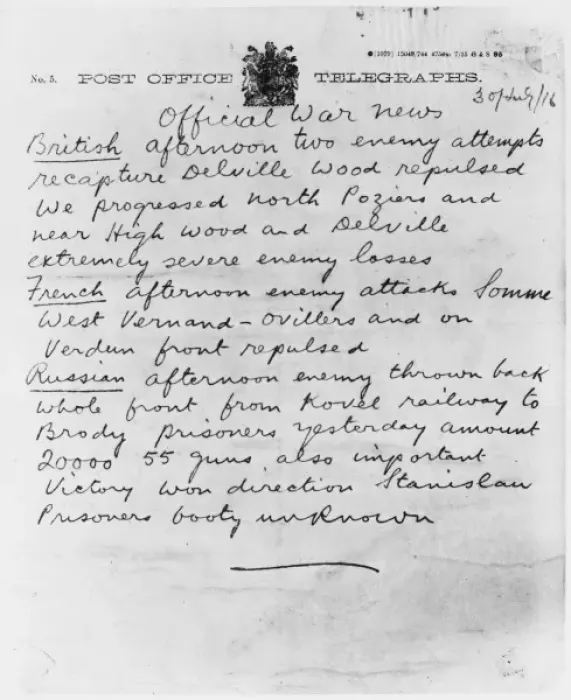 No. 5. POST OFFICE TELEGRAPHS.
30 July/16
Official War news
British afternoon two enemy attempts
recapture Delville Wood repulsed
We progressed north Poziers and
near High Wood and Delville
extremely severe enemy losses
French afternoon enemy attacks Somme
West Vermand-Ovillers and on
Verdun front repulsed
Russian afternoon enemy thrown back
whole front from Kovel railway to
Brody prisoners yesterday amount
20000 55 guns also important
Victory won direction Stanislau
Prisoners booty unknown